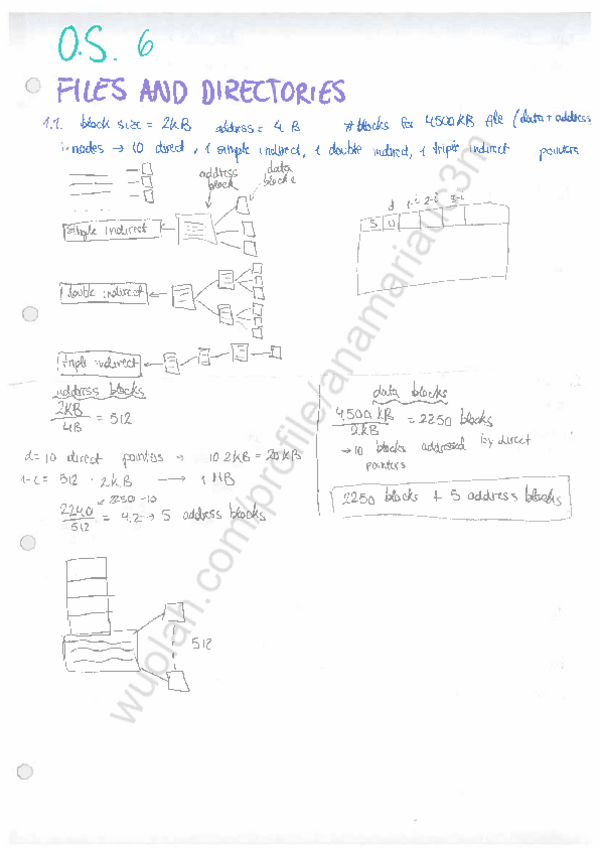 O.S. 6
FILES AND DIRECTORIES
1.1. block size = 2KB address = 4 B # blocks for 4500KB file (data + address
i-nodes → 10 direct, 1 simple indirect, 1 double indirect, 1 triple indirect pointers
address block
data blocks
d 1-i 2-i 3-i
simple indirect
1 double indirect
1 triple indirect
address blocks
2KB / 4B = 512
d = 10 direct pointers → 10 · 2KB = 20KB
1-i = 512 · 2KB → 1 MB
2250 - 10
2240 / 512 = 4.2 → 5 address blocks
data blocks
4500 KB / 2KB = 2250 blocks
→ 10 blocks addressed by direct
pointers
2250 blocks + 5 address blocks
512
wuolah.com/profile/anamariauc3m